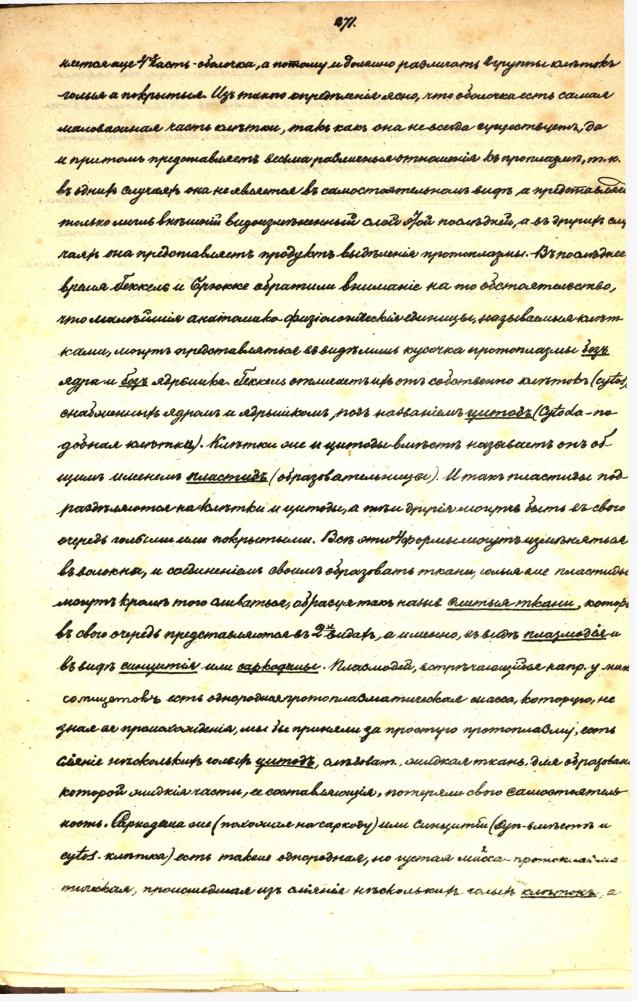 271.
няется еще 4ая часть - оболочка, а потому и должно различать 2 группы клѣтокъ
голыя а покрытыя. Изъ такого опредѣленія ясно, что оболочка есть самая
маловажная часть клѣтки, такъ какъ она не всегда существуетъ, да
и притомъ представляетъ весьма различныя отношенія къ проплазмѣ, т. к.
въ однихъ случаяхъ она не является въ самостоятельномъ видѣ, а представляетъ
только лишь внѣшній видоизмѣненный слой этой послѣдней, а въ другихъ слу
чаяхъ она представляетъ продуктъ выдѣленія протоплазмы. Въ послѣднее
время Геккель и Брюкке обратили вниманіе на то обстоятельство,
что малѣйшія анатомико-физіологическія единицы, называемыя клѣт
ками, могутъ представляться въ видѣ лишь кусочка протоплазмы безъ
ядра и безъ ядрышка. Геккель отличаетъ ихъ отъ собственно клѣтокъ (cytos),
снабженныхъ ядромъ и ядрышкомъ, подъ названіемъ цитодъ (Cytoda - по
добная клѣтка). Клѣтки же и цитоды вмѣстѣ называетъ онъ об
щимъ именемъ пластидъ (образовательницы). И такъ пластиды под
раздѣляются на клѣтки и цитоды, а тѣ и другія могутъ быть въ свою
очередь голыми или покрытыми. Всѣ эти 4 формы могутъ измѣняться
въ волокна, и соединеніемъ своимъ образовать ткани, голыя же пластиды
могутъ кромѣ того сливаться, образуя такъ назыв слитыя ткани, которы
въ свою очередь представляются въ 2хъ видахъ, а именно, въ видѣ плазмодія и
въ видѣ синцитія или саркодины. Плазмодій, встрѣчающійся напр. у мик
сомицетовъ есть однородная протоплазматическая масса, которую, не
зная ее происхожденія, мы бы приняли за простую протоплазму, есть
сліяніе нѣсколькихъ голыхъ цитодъ, слѣдоват., жидкая ткань, для образован
которой жидкія части, ее составляющія, потеряли свою самостоятель
ность. Саркодина же (похожая на саркоду) или Синцитій (syn - вмѣстѣ и
cytos - клѣтка) есть также однородная, но густая масса - протоплазма
тическая, происшедшая изъ сліянія нѣсколькихъ голыхъ клѣтокъ, а